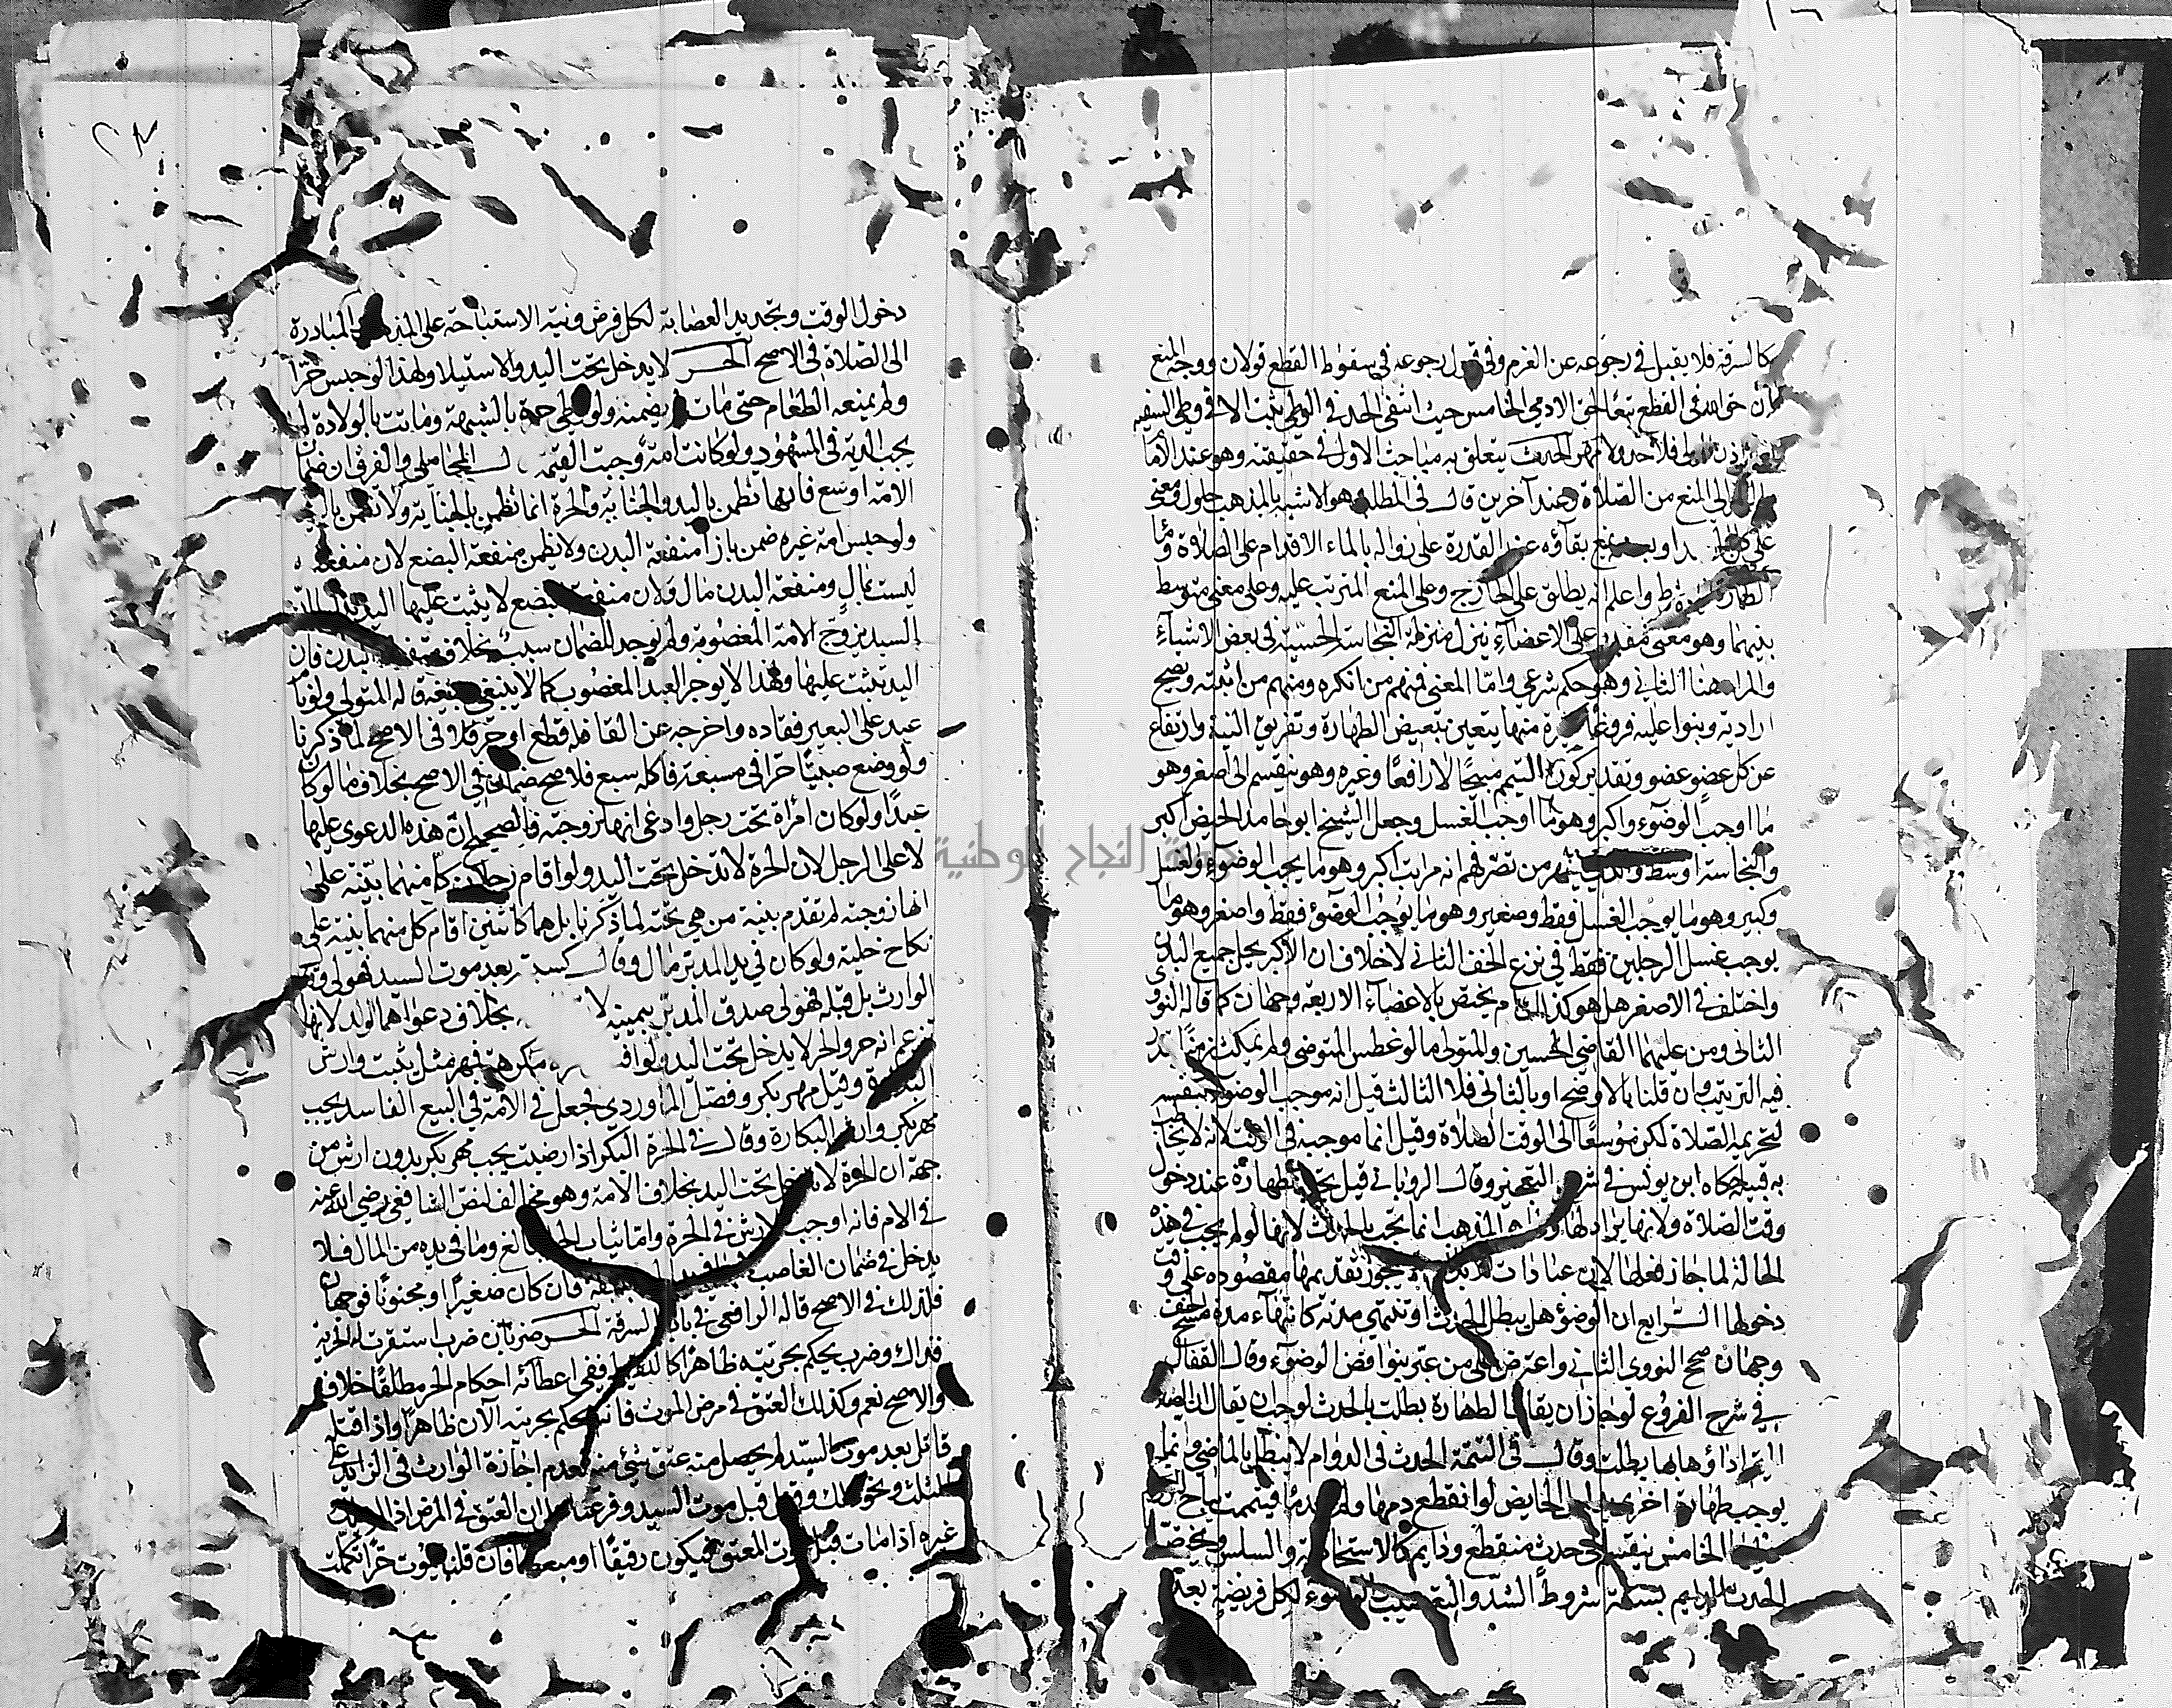 كالسرقة فلا يقبل في رجوعه عن الغرم وفي قبول رجوعه في سقوط القطع قولان ووجه المنع
ان حق الله في القطع تبعا لحق الادمي الخامس حيث انتفى الحد في الوطي يثبت الا في وطي السفيه
فلا حد ولا مهر الحدث يتعلق به مباحث الاول في حقيقته وهو عند الامام
والغزالي المنع من الصلاة وعند آخرين قال في المطلب وهو الاشبه بالمذهب حلول معنى
على كل يمنع بقاؤه عند القدرة على زواله بالماء الاقدام على الصلاة وما
الطهارة شرط واعلم انه يطلق على الخارج وعلى المنع المترتب عليه وعلى معنى متوسط
بينهما وهو معنى مقدر على الاعضآء ينزل منزلة النجاسة الحسية في بعض الاشيآء
والمراد هنا الثاني وهو حكم شرعي واما المعنى فمنهم من انكره ومنهم من اثبته ويصح
ارادته وبنوا عليه فروعا كثيرة منها يتعين تبعيض الطهارة وتفريق النية وارتفاع
عن كل عضو عضو وتقدير كون التيمم مبيحا لا رافعا وغيره وهو ينقسم الى اصغر وهو
ما اوجب الوضوء واكبر وهو ما اوجب الغسل وجعل الشيخ ابو حامد الحيض اكبر
والجنابة اوسط من تصرفهم انه مراتب اكبر وهو ما يجب الوضوء والغسل
وكبير وهو ما يوجب الغسل فقط وصغير وهو ما يوجب الوضوء فقط واصغر وهو ما
يوجب غسل الرجلين فقط في نزع الخف الثاني لا خلاف ان الاكبر يحل جميع البدن
واختلف في الاصغر هل هو كذلك ام يختص بالاعضآء الاربعة وجهان كما قاله النووي
الثاني ومن عليهما القاضي الحسين والمتولي ما لو غطس المتوضي ولم يمكث زمنا يقدر
فيه الترتيب وان قلنا بالاول صح او بالثاني فلا الثالث قيل انه موجب الوضوء بنفسه
لتحريمه الصلاة لكن موسعا الى الوقت الصلاة وقيل انما موجبه في الوقت لانه لا يخاطب
به قبيله حكاه ابن يونس في شرح التعجيز وقال الروياني قيل تجب الطهارة عند دخول
وقت الصلاة ولانها يراد لها المذهب انما تجب بالحدث لانها لو لم يجب في هذه
الحالة لما جاز فعلها لان عبادات الابدان لا يجوز تقديمها مقصوده على وقت
دخولها الرابع ان الوضوء هل يبطل بالحدث او تنتهي مدته كانتهاء مدة مسح الخف
وجهان صحح النووي الثاني واعترض على من عبر بنواقض الوضوء وقال القفال
في شرح الفروع لو جاز ان يقال الطهارة بطلت بالحدث لوجب ان يقال ان الصلاة
التي اداؤها بها بطلت وقال في التتمة الحدث في الدوام لا يبطل بالماضي وانما
يوجب طهارة اخرى الحايض لو انقطع دمها ولم تجد ماء فتيممت
الخامس ينقسم الى حدث منقطع ودايم كالاستحاضة والسلس ويختص
الحدث الدايم بستة شروط الشد والتعصيب والوضوء لكل فريضة بعد
دخول الوقت وتجديد العصابة لكل فرض ونية الاستباحة على المذهب والمبادرة
الى الصلاة في الاصح الحر لا يدخل تحت اليد والاستيلا ولهذا لو حبس حرا
ولم يمنعه الطعام حتى مات لم يضمنه ولو وطي حرة بالشبهة وماتت بالولادة لم
يجب الدية في المشهور ولو كانت امة وجبت القيمة قال المحاملي والفرق ان ضمان
الامة اوسع فانها تضمن باليد والجناية والحرة انما تضمن بالجناية ولا تضمن باليد
ولو حبس امة غيره ضمن بازا منفعة البدن ولا يضمن منفعة البضع لان منفعته
ليست بمال ومنفعة البدن مال ولان منفعة البضع لا يثبت عليها اليد بدليل ان
السيد يزوج الامة المغصوبة ولم يوجد للضمان سبب بخلاف منفعة البدن فان
اليد تثبت عليها ولهذا لا يوجر العبد المغصوب كما لا ينبغي بيعه قاله المتولي ولو نام
عبد على البعير فقاده واخرجه عن القافلة قطع او حر فلا في الاصح لما ذكرنا
ولو وضع صبيا حرا في مسبعة فاكله سبع فلا ضمان في الاصح بخلاف ما لو كان
عبدا ولو كان امرأة تحت رجل وادعى انها زوجته فالصحيح ان هذه الدعوى عليها
لا على الرجل لان الحرة لا تدخل تحت اليد ولو اقام رجلان كل منهما بينة على
انها زوجته لم تقدم بينة من هي تحته لما ذكرنا بل هما كاثنين اقام كل منهما بينة على
نكاح خلية ولو كان في يد المدبر مال وقال كسبته بعد موت السيد فهو لي وقال
الوارث بل قبله فهو لي صدق المدبر بيمينه بخلاف دعواهما الولد لانها
تزعم انه حر والحر لا يدخل تحت اليد ولو مكرهة فمهر مثل ثيب وارش
البكارة وقيل مهر بكر وفصل الماوردي فجعل في الامة في البيع الفاسد يجب
مهر بكر وارش البكارة وقال في الحرة البكر اذا رضيت يجب مهر بكر بدون ارش من
جهة ان الحرة لا تدخل تحت اليد بخلاف الامة وهو مخالف لنص الشافعي رضي الله عنه
في الام فانه اوجب الارش في الحرة واما ثياب الحر البالغ وما في يده من المال فلا
يدخل في ضمان الغاصب فان كان صغيرا او مجنونا فوجهان
فكذلك في الاصح قاله الرافعي في باب السرقة الحر ضربان ضرب استقرت له الحرية
فذاك وضرب يحكم بحريته ظاهرا كاللقيط ففي اعطائه احكام الحر مطلقا خلاف
والاصح نعم وكذلك العتق في مرض الموت فانه يحكم بحريته الآن ظاهرا واذا اقتله
قاتل بعد موت السيد لم يحصل منه عتق شيء منه لعدم اجازة الوارث في الزايد على
الثلث ونحو ذلك قبل موت السيد وفرعنا على ان العتق في المرض اذا
غيره اذا مات قبل موت المعتق فيكون رقيقا او مبعضا فان قلنا يموت حرا تكملت
النجاح الوطنية